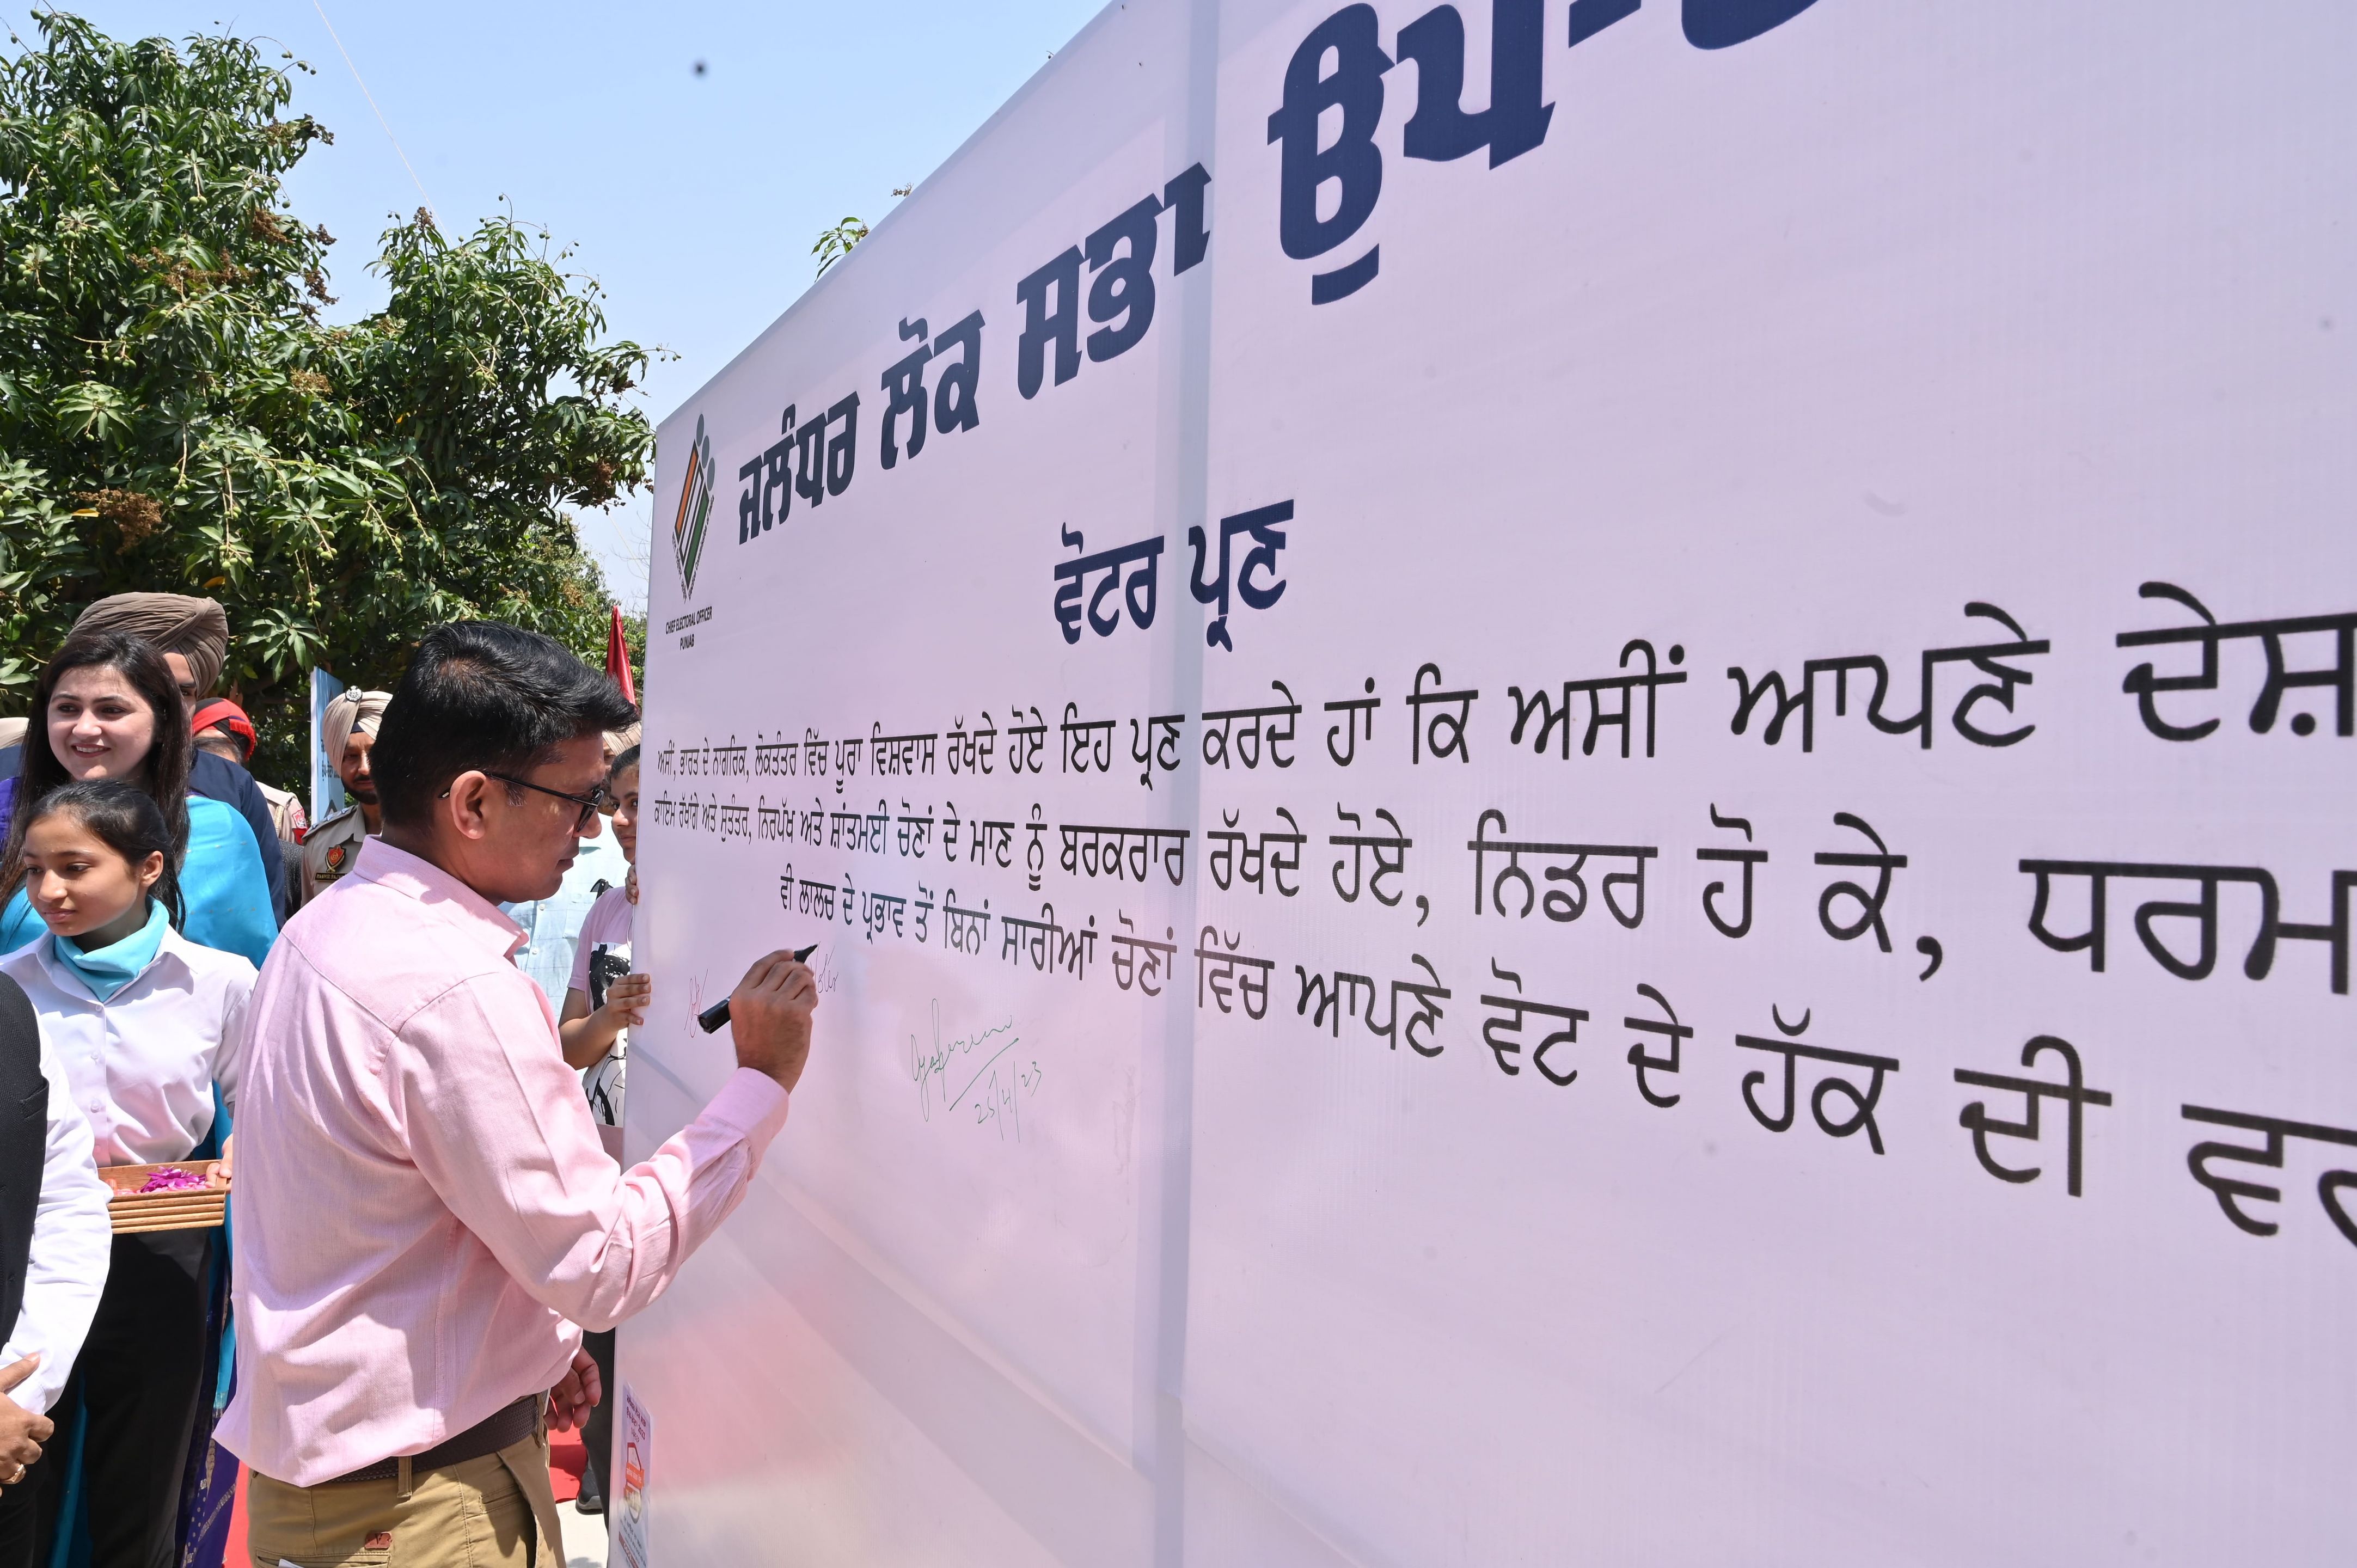 ਜਲੰਧਰ ਲੋਕ ਸਭਾ
CHIEF ELECTORAL OFFICER
PUNJAB
ਵੋਟਰ ਪ੍ਰਣ
ਅਸੀਂ, ਭਾਰਤ ਦੇ ਨਾਗਰਿਕ, ਲੋਕਤੰਤਰ ਵਿੱਚ ਪੂਰਾ ਵਿਸ਼ਵਾਸ ਰੱਖਦੇ ਹੋਏ ਇਹ ਪ੍ਰਣ ਕਰਦੇ ਹਾਂ ਕਿ ਅਸੀਂ ਆਪਣੇ ਦੇਸ਼
ਕਾਇਮ ਰੱਖਾਂਗੇ ਅਤੇ ਸੁਤੰਤਰ, ਨਿਰਪੱਖ ਅਤੇ ਸ਼ਾਂਤਮਈ ਚੋਣਾਂ ਦੇ ਮਾਣ ਨੂੰ ਬਰਕਰਾਰ ਰੱਖਦੇ ਹੋਏ, ਨਿਡਰ ਹੋ ਕੇ, ਧਰਮ
ਵੀ ਲਾਲਚ ਦੇ ਪ੍ਰਭਾਵ ਤੋਂ ਬਿਨਾਂ ਸਾਰੀਆਂ ਚੋਣਾਂ ਵਿੱਚ ਆਪਣੇ ਵੋਟ ਦੇ ਹੱਕ ਦੀ
25/4/23